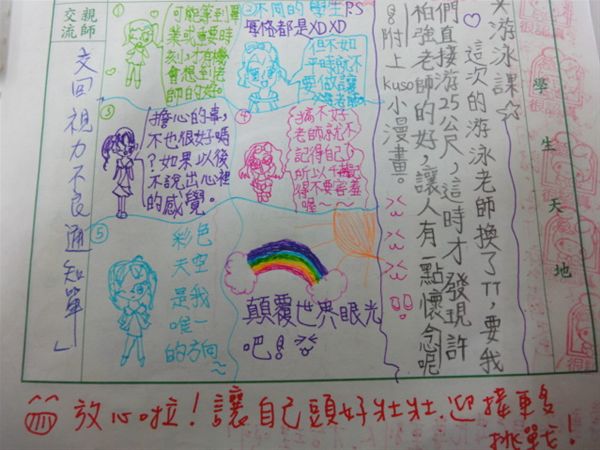 學生天地
游泳課☆
這次的游泳老師換了TT,要我
們直接游25公尺,這時才發現許
柏強老師的好,讓人有一點懷念呢
附上kuso小漫畫。
可能等到畢
業或重要時
刻 才有機
會想到老
師的好。
②不同的 學生P.S
每格都是XDXD
但不如
平時就不
要做讓
③
擔心的事,
不也很好嗎
?如果以後
不說出心裡
的感覺。
④
搞不好
老師就不
記得自己
所以千萬記
得不要害羞
喔~~
⑤
彩色
天空
是我
唯一
的方向~
顛覆世界眼光
吧!
親師交流
交回視力不良通知單」
放心啦!讓自己頭好壯壯.迎接更多
挑戰!